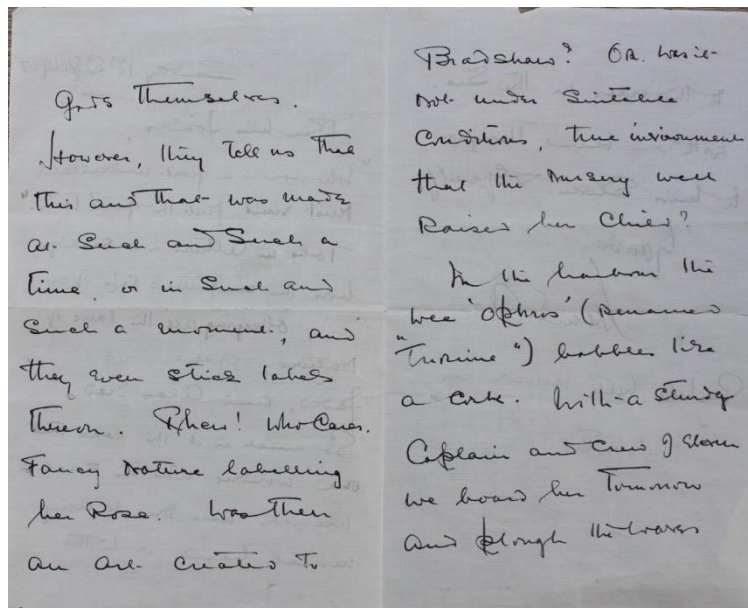 Gods themselves.
However, they tell us that
this and that was made
at Such and Such a
time, or in Such and
Such a moment, and
they even stick labels
thereon. Phew! Who Cares.
Fancy Nature labelling
her Rose. Was then
an art created to
Bradshaw? Or was it
not under Suitable
Conditions, true invironment
that the Nursery well
Raised her Child?
In the harbour the
wee 'Ophris' (renamed
") bobbles like
a cork. With a sturdy
Captain and crew
we board her Tomorrow
and plough the waves